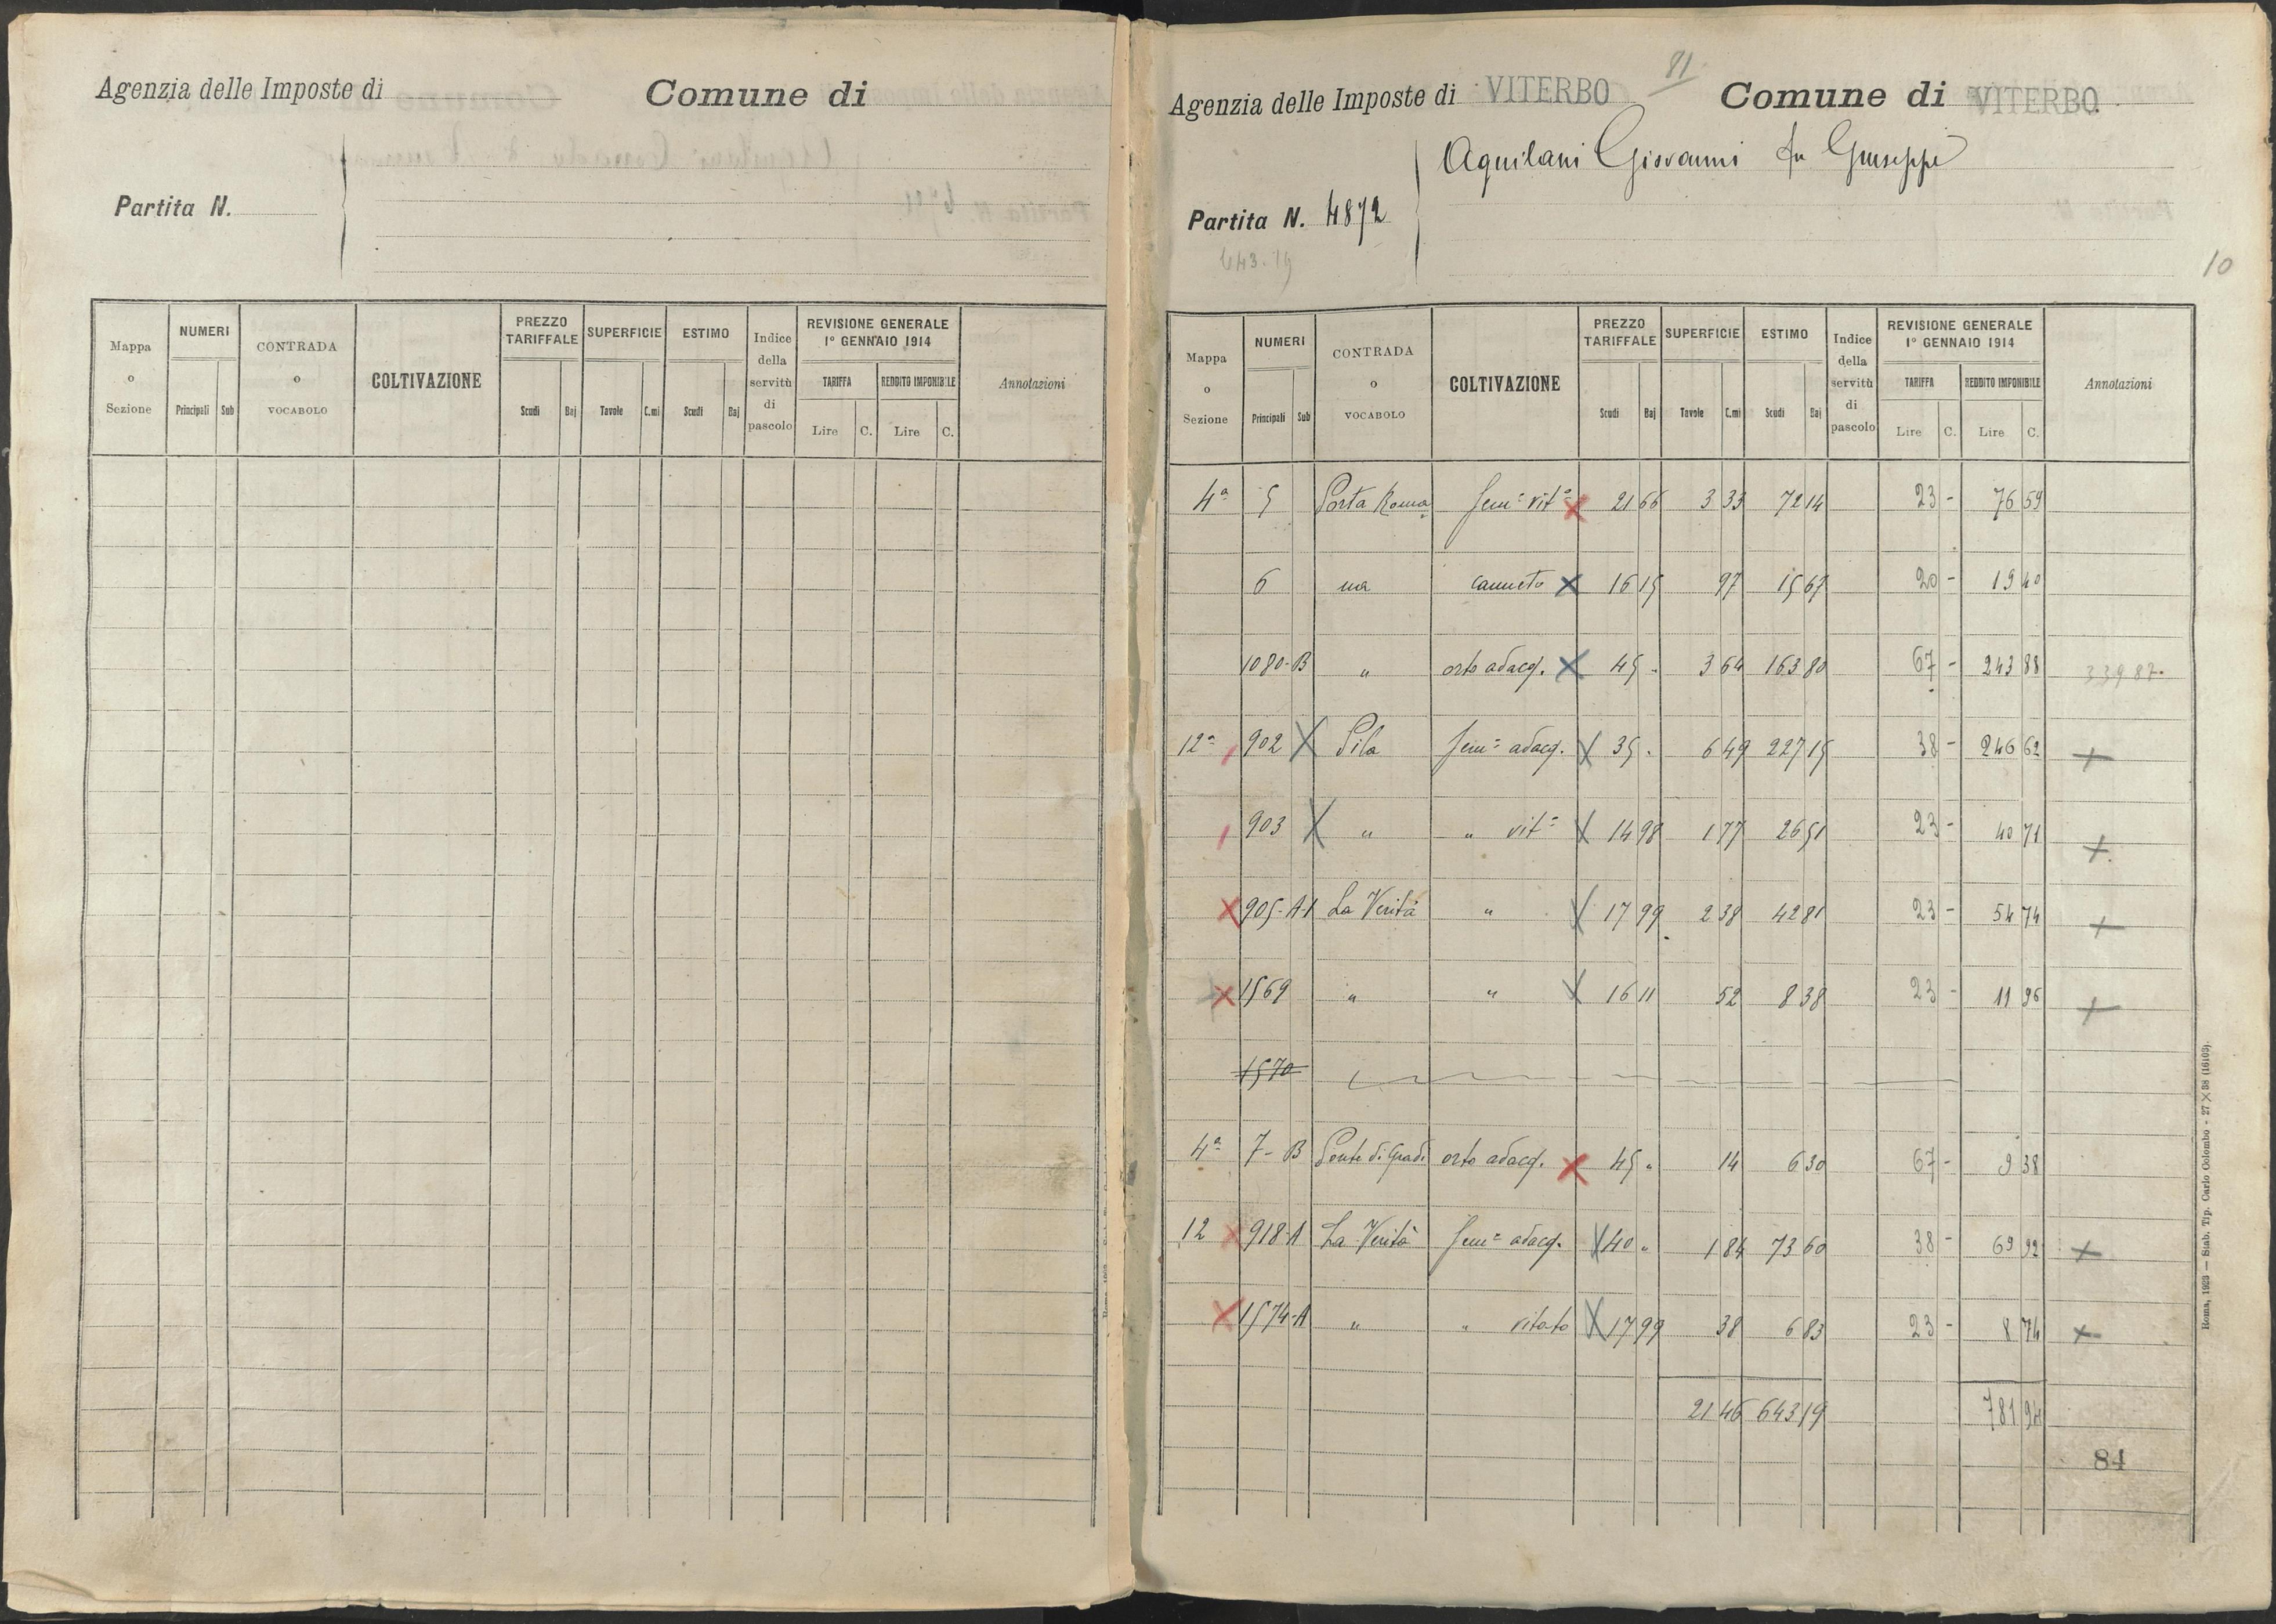 Agenzia delle Imposte di
Comune di
Partita N.
Mappa o Sezione
NUMERI Principali Sub
CONTRADA o VOCABOLO
COLTIVAZIONE
PREZZO TARIFFALE Scudi Baj
SUPERFICIE Tavole C.mi
ESTIMO Scudi Baj
Indice della servitù di pascolo
REVISIONE GENERALE 1° GENNAIO 1914
TARIFFA Lire C.
REDDITO IMPONIBILE Lire C.
Annotazioni
81
Agenzia delle Imposte di VITERBO Comune di VITERBO
Aquilani Giovanni fu Giuseppe
Partita N. 4872
643.19
10
Mappa o Sezione
NUMERI Principali Sub
CONTRADA o VOCABOLO
COLTIVAZIONE
PREZZO TARIFFALE Scudi Baj
SUPERFICIE Tavole C.mi
ESTIMO Scudi Baj
Indice della servitù di pascolo
REVISIONE GENERALE 1° GENNAIO 1914
TARIFFA Lire C.
REDDITO IMPONIBILE Lire C.
Annotazioni
4ª 5 Porta Roma Semº vitº X 21 66 3 33 72 14 23 - 76 59
6 ma canneto X 16 15 97 15 67 20 - 19 40
1080-B " orto adacq. X 45 - 3 64 163 80 67 - 243 88 339 87
12ª 902 X Pila Semº adacq. X 35 - 6 49 227 15 38 - 246 62 +
903 X " " vitº X 14 98 1 77 26 51 23 - 40 71 +
X 905-A-1 La Verità " X 17 99 2 38 42 81 23 - 54 74 +
X 1569 " " X 16 11 52 8 38 23 - 11 96 +
1570
4ª 7-B Ponte di Gradi orto adacq. X 45 " 14 6 30 67 - 9 38
12 X 918-A La Verità Semº adacq. X 40 " 1 84 73 60 38 - 69 92 +
X 1574-A " " vitato X 17 99 38 6 83 23 - 8 74 +
21 46 643 19 781 94
84
Roma, 1923 — Stab. Tip. Carlo Colombo - 27 X 38 (16103).